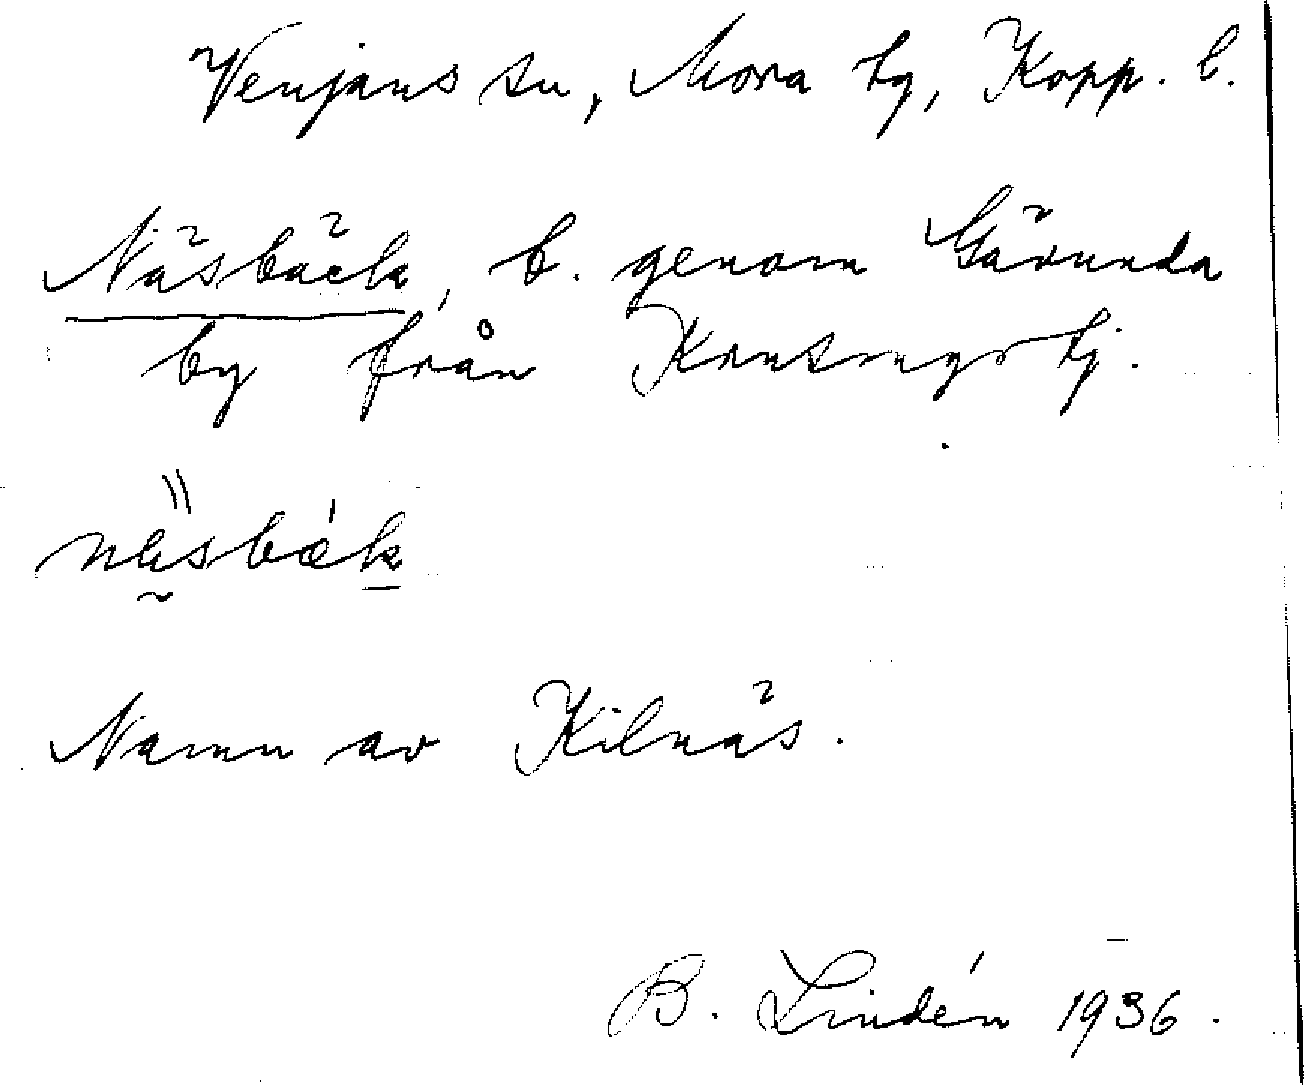 Venjans sn, Mora tg, Kopp. l.
Näsbäck, b. genom Gävunda
by från tj.
näsbäk
Namn av Kilnäs.
B. Lindén 1936.